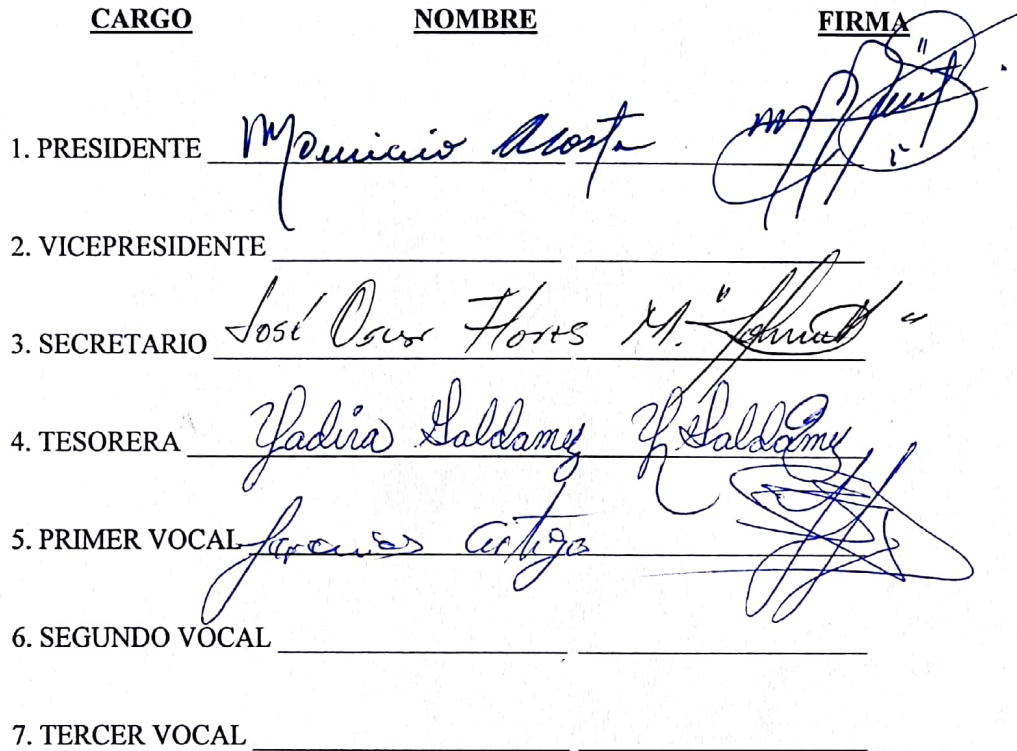 CARGO NOMBRE FIRMA
1. PRESIDENTE Mauricio Acosta
2. VICEPRESIDENTE
3. SECRETARIO José Oscar Flores M.
4. TESORERA Yadira Saldamy Y Saldamy
5. PRIMER VOCAL Artiga
6. SEGUNDO VOCAL
7. TERCER VOCAL